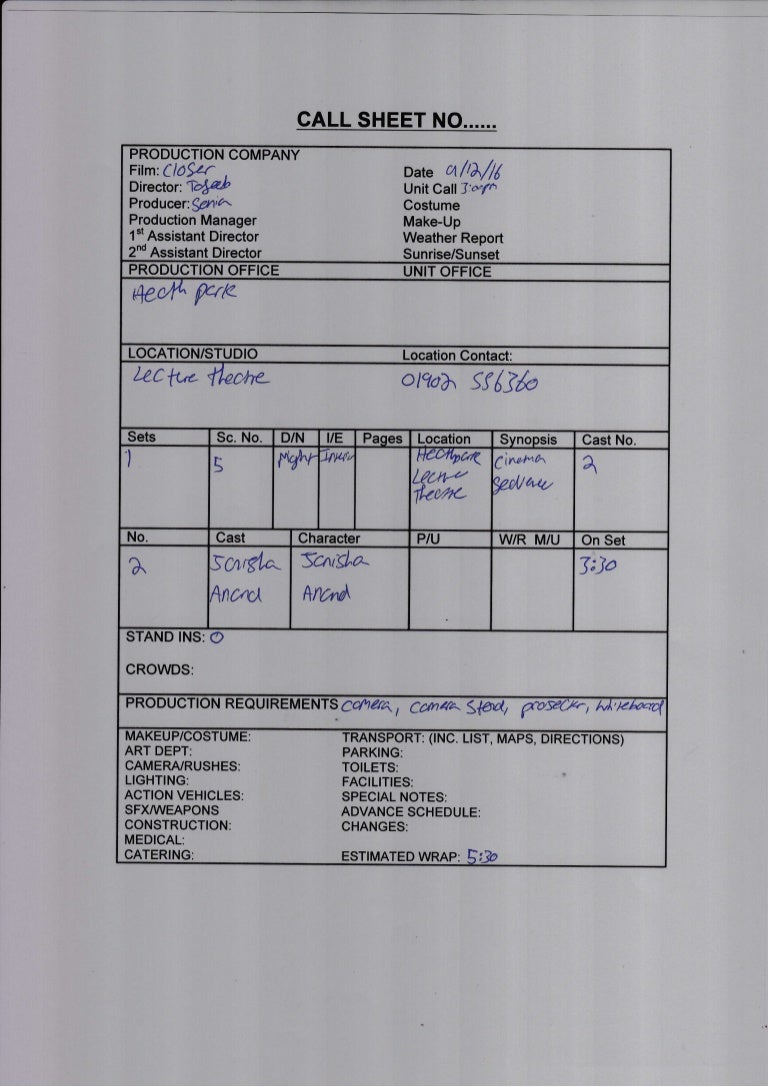 CALL SHEET NO......
PRODUCTION COMPANY
Film: Closer
Date 9/12/16
Director: Toseeb
Unit Call 3:00pm
Producer: Sonia
Costume
Production Manager
Make-Up
1st Assistant Director
Weather Report
2nd Assistant Director
Sunrise/Sunset
PRODUCTION OFFICE UNIT OFFICE
Heath park
LOCATION/STUDIO Location Contact:
Lecture theatre 01902 556360
Sets Sc. No. D/N I/E Pages Location Synopsis Cast No.
1 5 Night Heathpark Cinema 2
Lecture
theatre
No. Cast Character P/U W/R M/U On Set
2 3:30
Anand Anand
STAND INS: 0
CROWDS:
PRODUCTION REQUIREMENTS camera, camera stand, whiteboard
MAKEUP/COSTUME: TRANSPORT: (INC. LIST, MAPS, DIRECTIONS)
ART DEPT: PARKING:
CAMERA/RUSHES: TOILETS:
LIGHTING: FACILITIES:
ACTION VEHICLES: SPECIAL NOTES:
SFX/WEAPONS ADVANCE SCHEDULE:
CONSTRUCTION: CHANGES:
MEDICAL:
CATERING: ESTIMATED WRAP: 5:30